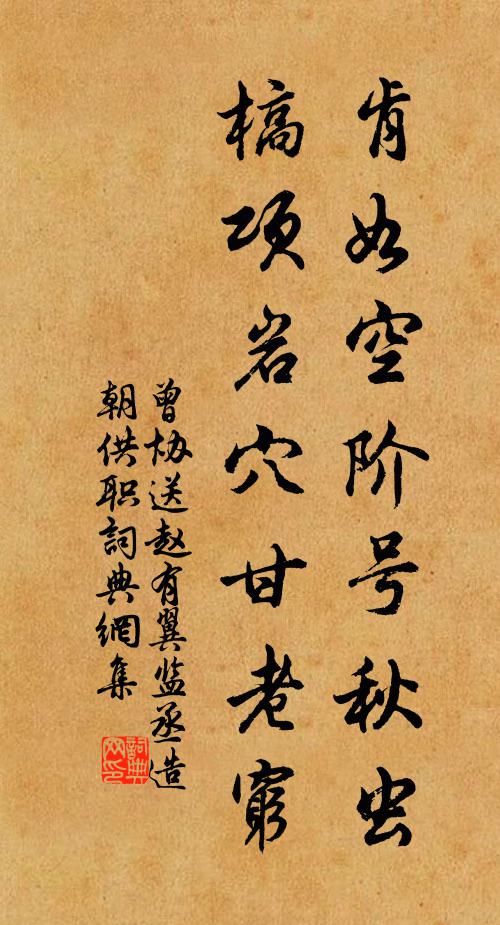 肯如空阶号秋虫
槁项岩穴甘老穷
曾协送赵有翼监丞造
朝供职詞典網集
詞典网印